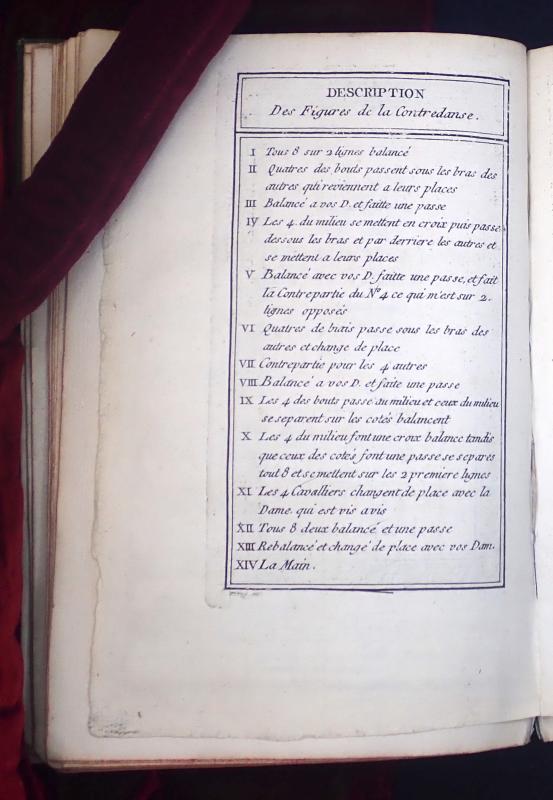 DESCRIPTION
Des Figures de la Contredanse.
I Tous 8 sur 2 lignes balancé
II Quatres des bouts passent sous les bras des
autres qui reviennent a leurs places
III Balancé a vos D. et faitte une passe
IV Les 4 du milieu se mettent en croix puis passe
dessous les bras et par derriere les autres et
se mettent a leurs places
V Balancé avec vos D. faitte une passe, et fait
la Contrepartie du No. 4 ce qui m'est sur 2.
lignes opposés
VI Quatres de biais passe sous les bras des
autres et change de place
VII Contrepartie pour les 4 autres
VIII Balancé a vos D. et faite une passe
IX Les 4 des bouts passe au milieu et ceux du milieu
se separent sur les cotés balancent
X Les 4 du milieu font une croix balance tandis
que ceux des cotés font une passe se separes
tout 8 et se mettent sur les 2 premiere lignes
XI Les 4 Cavalliers changent de place avec la
Dame qui est vis a vis
XII Tous 8 deux balancé et une passe
XIII Rebalancé et changé de place avec vos Dam.
XIV La Main.